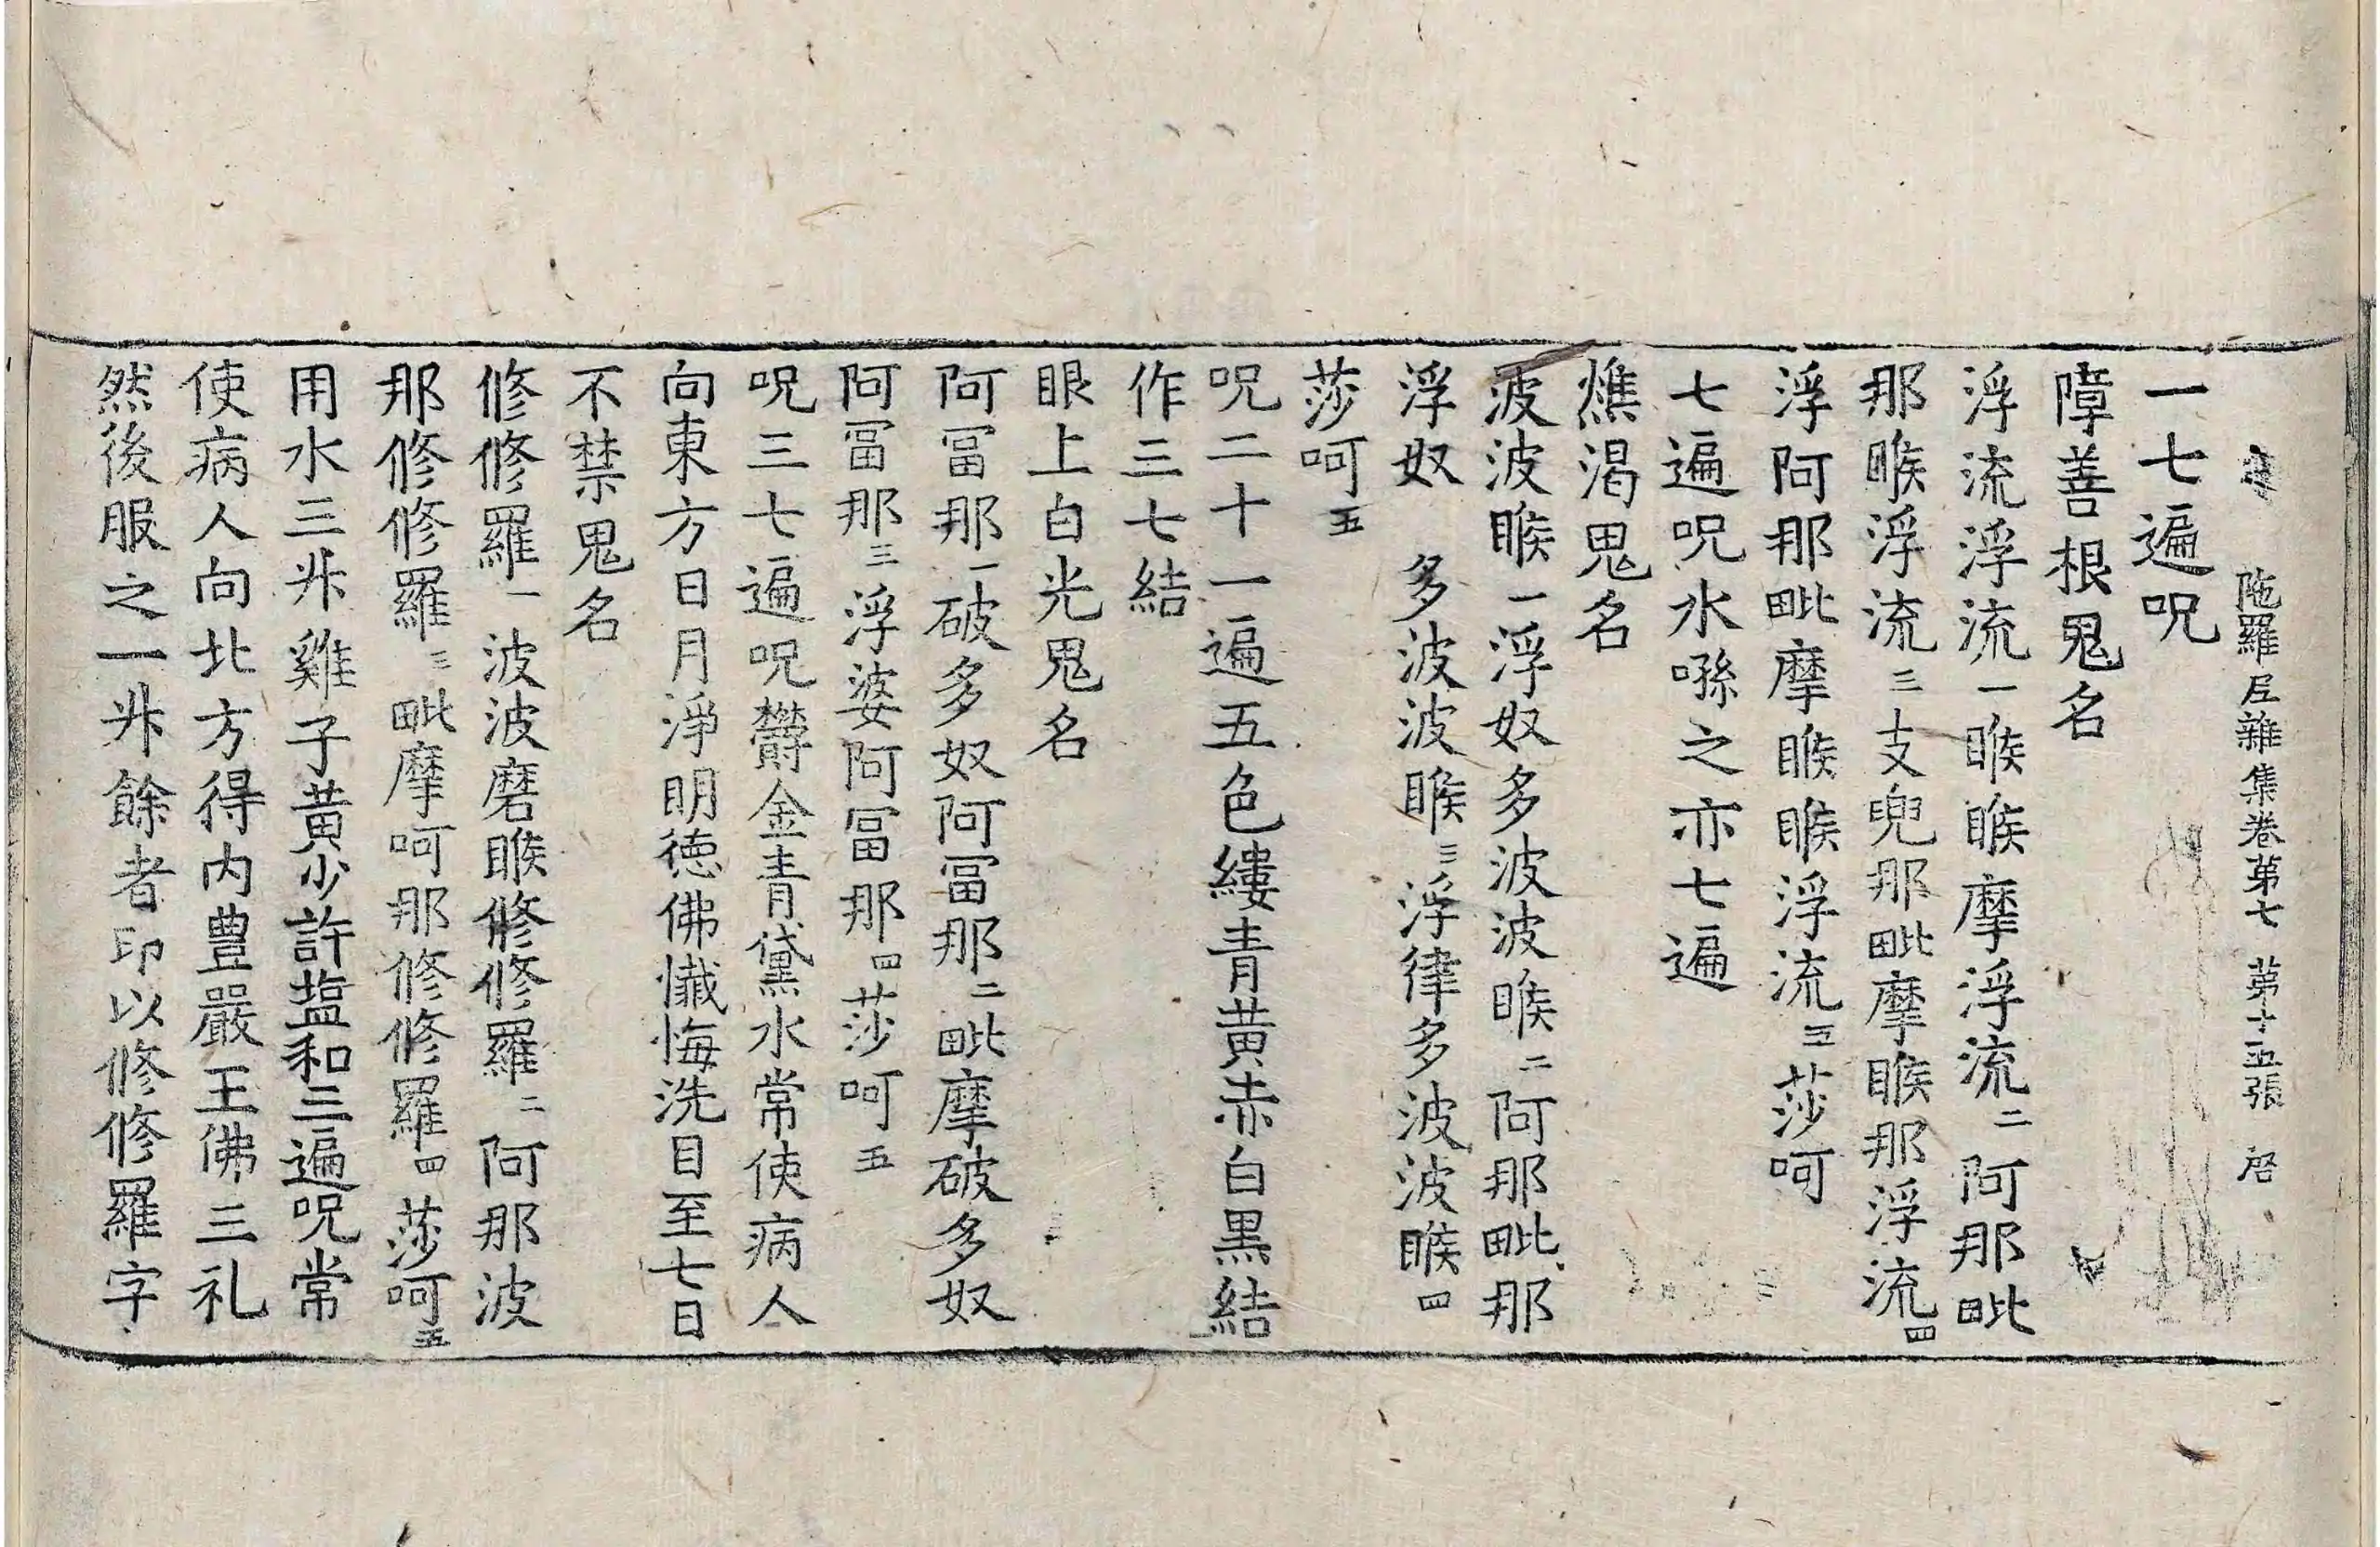 陁羅尼雜集卷苐七　苐十五張　启
一七遍呪
障善根鬼名
浮流浮流一睺睺摩浮流二阿那毗
那睺浮流三支兜那毗摩睺那浮流四
浮阿那毗摩睺睺浮流五莎呵
七遍呪水噀之亦七遍
燋渴鬼名
波波睺一浮奴多波波睺二阿那毗那
浮奴　多波波睺三浮律多波波睺四
莎呵五
呪二十一遍五色縷青黃赤白黑結
作三七結
眼上白光鬼名
阿冨那一破多奴阿冨那二毗摩破多奴
阿冨那三浮婆阿冨那四莎呵五
呪三七遍呪欝金青黛水常使病人
向東方日月淨明德佛懺悔洗目至七日
不禁鬼名
修修羅一波波磨睺修修羅二阿那波
那修修羅三毗摩呵那修修羅四莎呵五
用水三升雞子黃少許塩和三遍呪常
使病人向北方得内豊嚴王佛三礼
然後服之一升餘者印以修修羅字